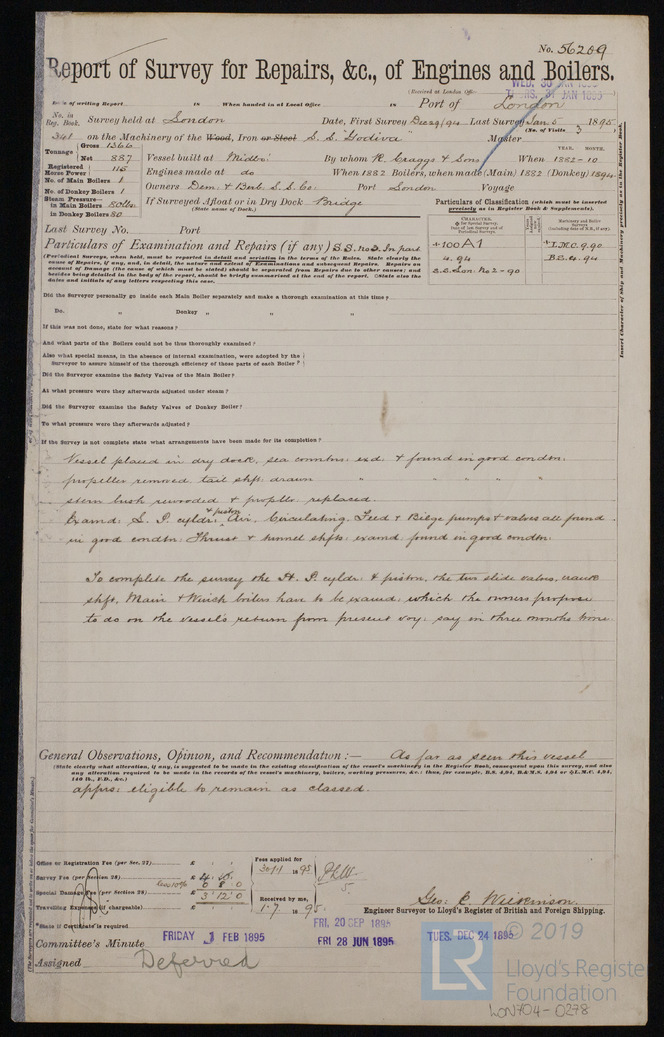 No. 56209
Report of Survey for Repairs, &c., of Engines and Boilers.
(Received at London Office
WED. 30 JAN 1895
THURS. 31 JAN 1895
Date of writing Report 18 When handed in at Local Office 18 Port of London
No. in Reg. Book. Survey held at London Date, First Survey Dec 29/94 Last Survey Jan. 5 1895
(No. of Visits 3 )
341 on the Machinery of the Wood, Iron or Steel S. S. "Godiva" Master
Tonnage Gross 1366
Net 887
Vessel built at Middbro' By whom R. Craggs & Sons When 1882-10
YEAR. MONTH.
Registered Horse Power 115
Engines made at do When 1882 Boilers, when made (Main) 1882 (Donkey) 1894
No. of Main Boilers 1
No. of Donkey Boilers 1
Owners Dem. & Berb. S. S. Co. Port London Voyage
Steam Pressure in Main Boilers 80lbs
in Donkey Boilers 80
If Surveyed Afloat or in Dry Dock Bridge
(State name of Dock.)
Particulars of Classification (which must be inserted precisely as in Register Book & Supplements).
Last Survey No. Port
CHARACTER.
+100A1
4.94
S.S. Lon. No 2-90
+L.M.C. 9.90
B.S. 4.94
Insert Character of Ship and Machinery precisely as in the Register Book.
Particulars of Examination and Repairs (if any) S.S. No 2. In part
(Periodical Surveys, when held, must be reported in detail and seriatim in the terms of the Rules. State clearly the
cause of Repairs, if any, and, in detail, the nature and extent of Examinations and subsequent Repairs. Repairs on
account of Damage (the cause of which must be stated) should be separated from Repairs due to other causes; and
besides being detailed in the body of the report, should be briefly summarised at the end of the report. State also the
dates and initials of any letters respecting this case.
Did the Surveyor personally go inside each Main Boiler separately and make a thorough examination at this time?
Do. " Donkey " " "
If this was not done, state for what reasons?
And what parts of the Boilers could not be thus thoroughly examined?
Also what special means, in the absence of internal examination, were adopted by the
Surveyor to assure himself of the thorough efficiency of those parts of each Boiler?
Did the Surveyor examine the Safety Valves of the Main Boiler?
At what pressure were they afterwards adjusted under steam?
Did the Surveyor examine the Safety Valves of Donkey Boiler?
To what pressure were they afterwards adjusted?
If the Survey is not complete state what arrangements have been made for its completion?
Vessel placed in dry dock, sea conntns: exd: & found in good condtn:
propeller removed, tail shft: drawn " " " " "
stern bush rewooded & propllr: replaced.
Examd: L. P. cyldr: & piston, Air, Circulating, Feed & Bilge pumps & valves all found
in good condtn: Thrust & tunnel shfts: examd: found in good condtn:
To complete the survey the H. P. cyldr: & piston, the two slide valves, crank
shft, Main & Winch boilers have to be examd: which the owners propose
to do on the vessel's return from present voy: say in three months time.
General Observations, Opinion, and Recommendation :— As far as seen this vessel
(State clearly what alteration, if any, is suggested to be made in the existing classification of the vessel's machinery in the Register Book, consequent upon this survey, and also
any alteration required to be made in the records of the vessel's machinery, boilers, working pressures, &c.: thus, for example, B.S. 4,94, B.&M.S. 4,94 or L.M.C. 4,94,
140 lb., F.D., &c.)
appts: eligible to remain as classed.
Office or Registration Fee (per Sec. 27) £ : :
Survey Fee (per Section 28) £ 4 : 0 :
less 10% 0 8 0
Special Damage Fee (per Section 28) £ 3 : 12 : 0
Travelling Expenses (if chargeable) £ : :
Fees applied for
30/1 1895
Received by me,
1.7 1895
Geo: C. Wilkinson
Engineer Surveyor to Lloyd's Register of British and Foreign Shipping.
State if Certificate is required
FRI. 20 SEP 1895
Committee's Minute FRIDAY 1 FEB 1895 FRI 28 JUN 1895 TUES. DEC 24 1895
Assigned Deferred
© 2019
LR
Lloyd's Register
Foundation
LON704-0278